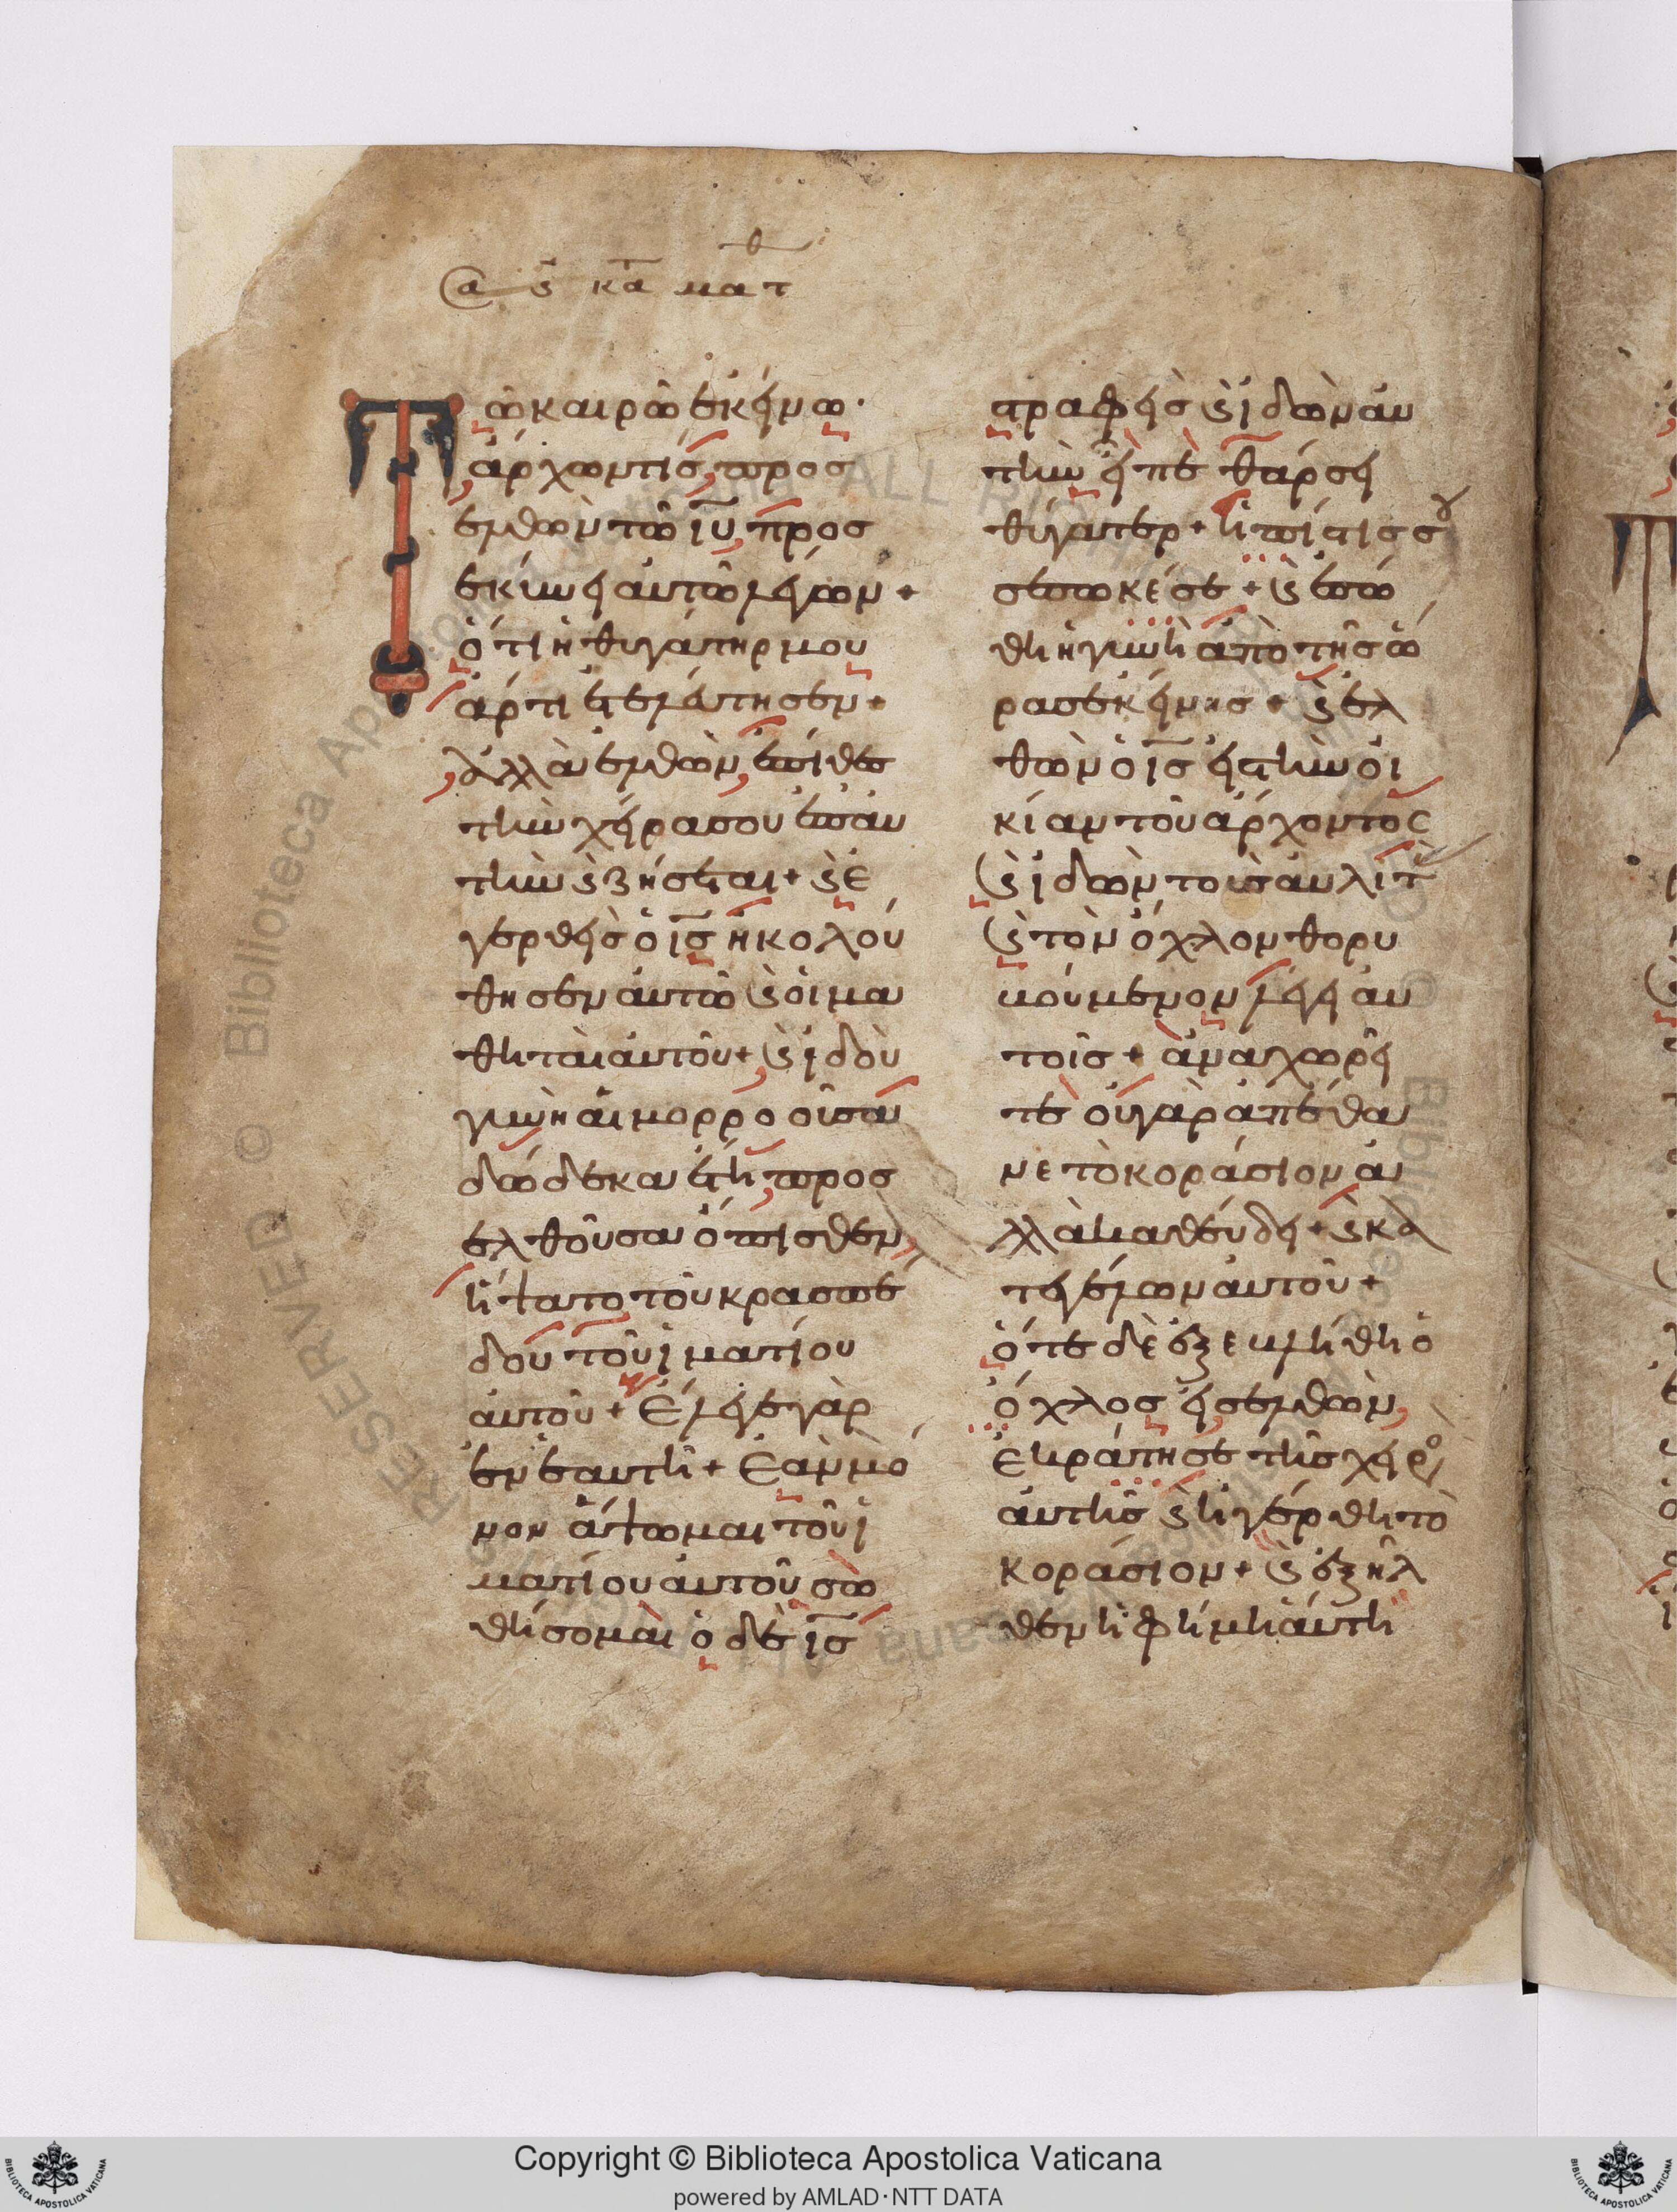 σα ϛ κατ ματθ
Τῶ καιρῶ ἐκείνω·
ἄρχωντίς προς
ελθὼν τῶ ιυ προς
εκύνει αυτῶ λέγων +
ὅτι η θυγάτηρ μου
ἄρτι ἐτελεύτησεν +
ἀλλὰ ελθὼν, ἐπίθες
τὴν χείρα σου ἐπ αυ
τὴν ϛ ζήσεται + ϛ ἐ
γερθεὶς ὁ ις ἠκολού
θησεν αυτῶ ϛ οἱ μα
θηταὶ αυτοῦ + ϛ ἰδοὺ
γυνὴ αἱμορροοῦσα
δώδεκα ἔτη, προς
ελθοῦσα ὄπισθεν
ἥψατο τοῦ κρασπέ
δου τοῦ ἱματίου
αὐτοῦ + Ἔλεγε γὰρ
ἐν ἑαυτῆ + Ἐὰν μό
νον ἅψωμαι τοῦ ἱ
ματίου αὐτοῦ σω
θήσομαι ὁ δὲ ις
στραφεὶς ϛ ἰδὼν αυ
τὴν εἶπε θάρσει
θύγατερ + ἡ πίστις σου
σέσωκέ σε + ϛ ἐσώ
θη ἡ γυνὴ ἀπὸ τῆς ὥ
ρας ἐκείνης + ϛ ελ
θὼν ὁ ις εἰς τὴν οἰ
κίαν τοῦ ἄρχοντος
ϛ ἰδὼν τοὺς αυλιτὰς
ϛ τὸν ὄχλον θορυ
βούμενον λέγει αυ
τοῖς + ἀναχωρεῖ
τε οὐ γὰρ ἀπέθα
νε τὸ κοράσιον ἀ
λλὰ καθεύδει + ϛ κα
τεγέλων αυτοῦ +
ὅτε δὲ ἐξεβλήθη ὁ
ὄχλος εἰσελθὼν,
ἐκράτησε τῆς χειρο
αυτῆς ϛ ἠγέρθη τὸ
κοράσιον + ϛ ἐξῆλ
θεν ἡ φήμη αυτη
Copyright © Biblioteca Apostolica Vaticana
powered by AMLAD·NTT DATA